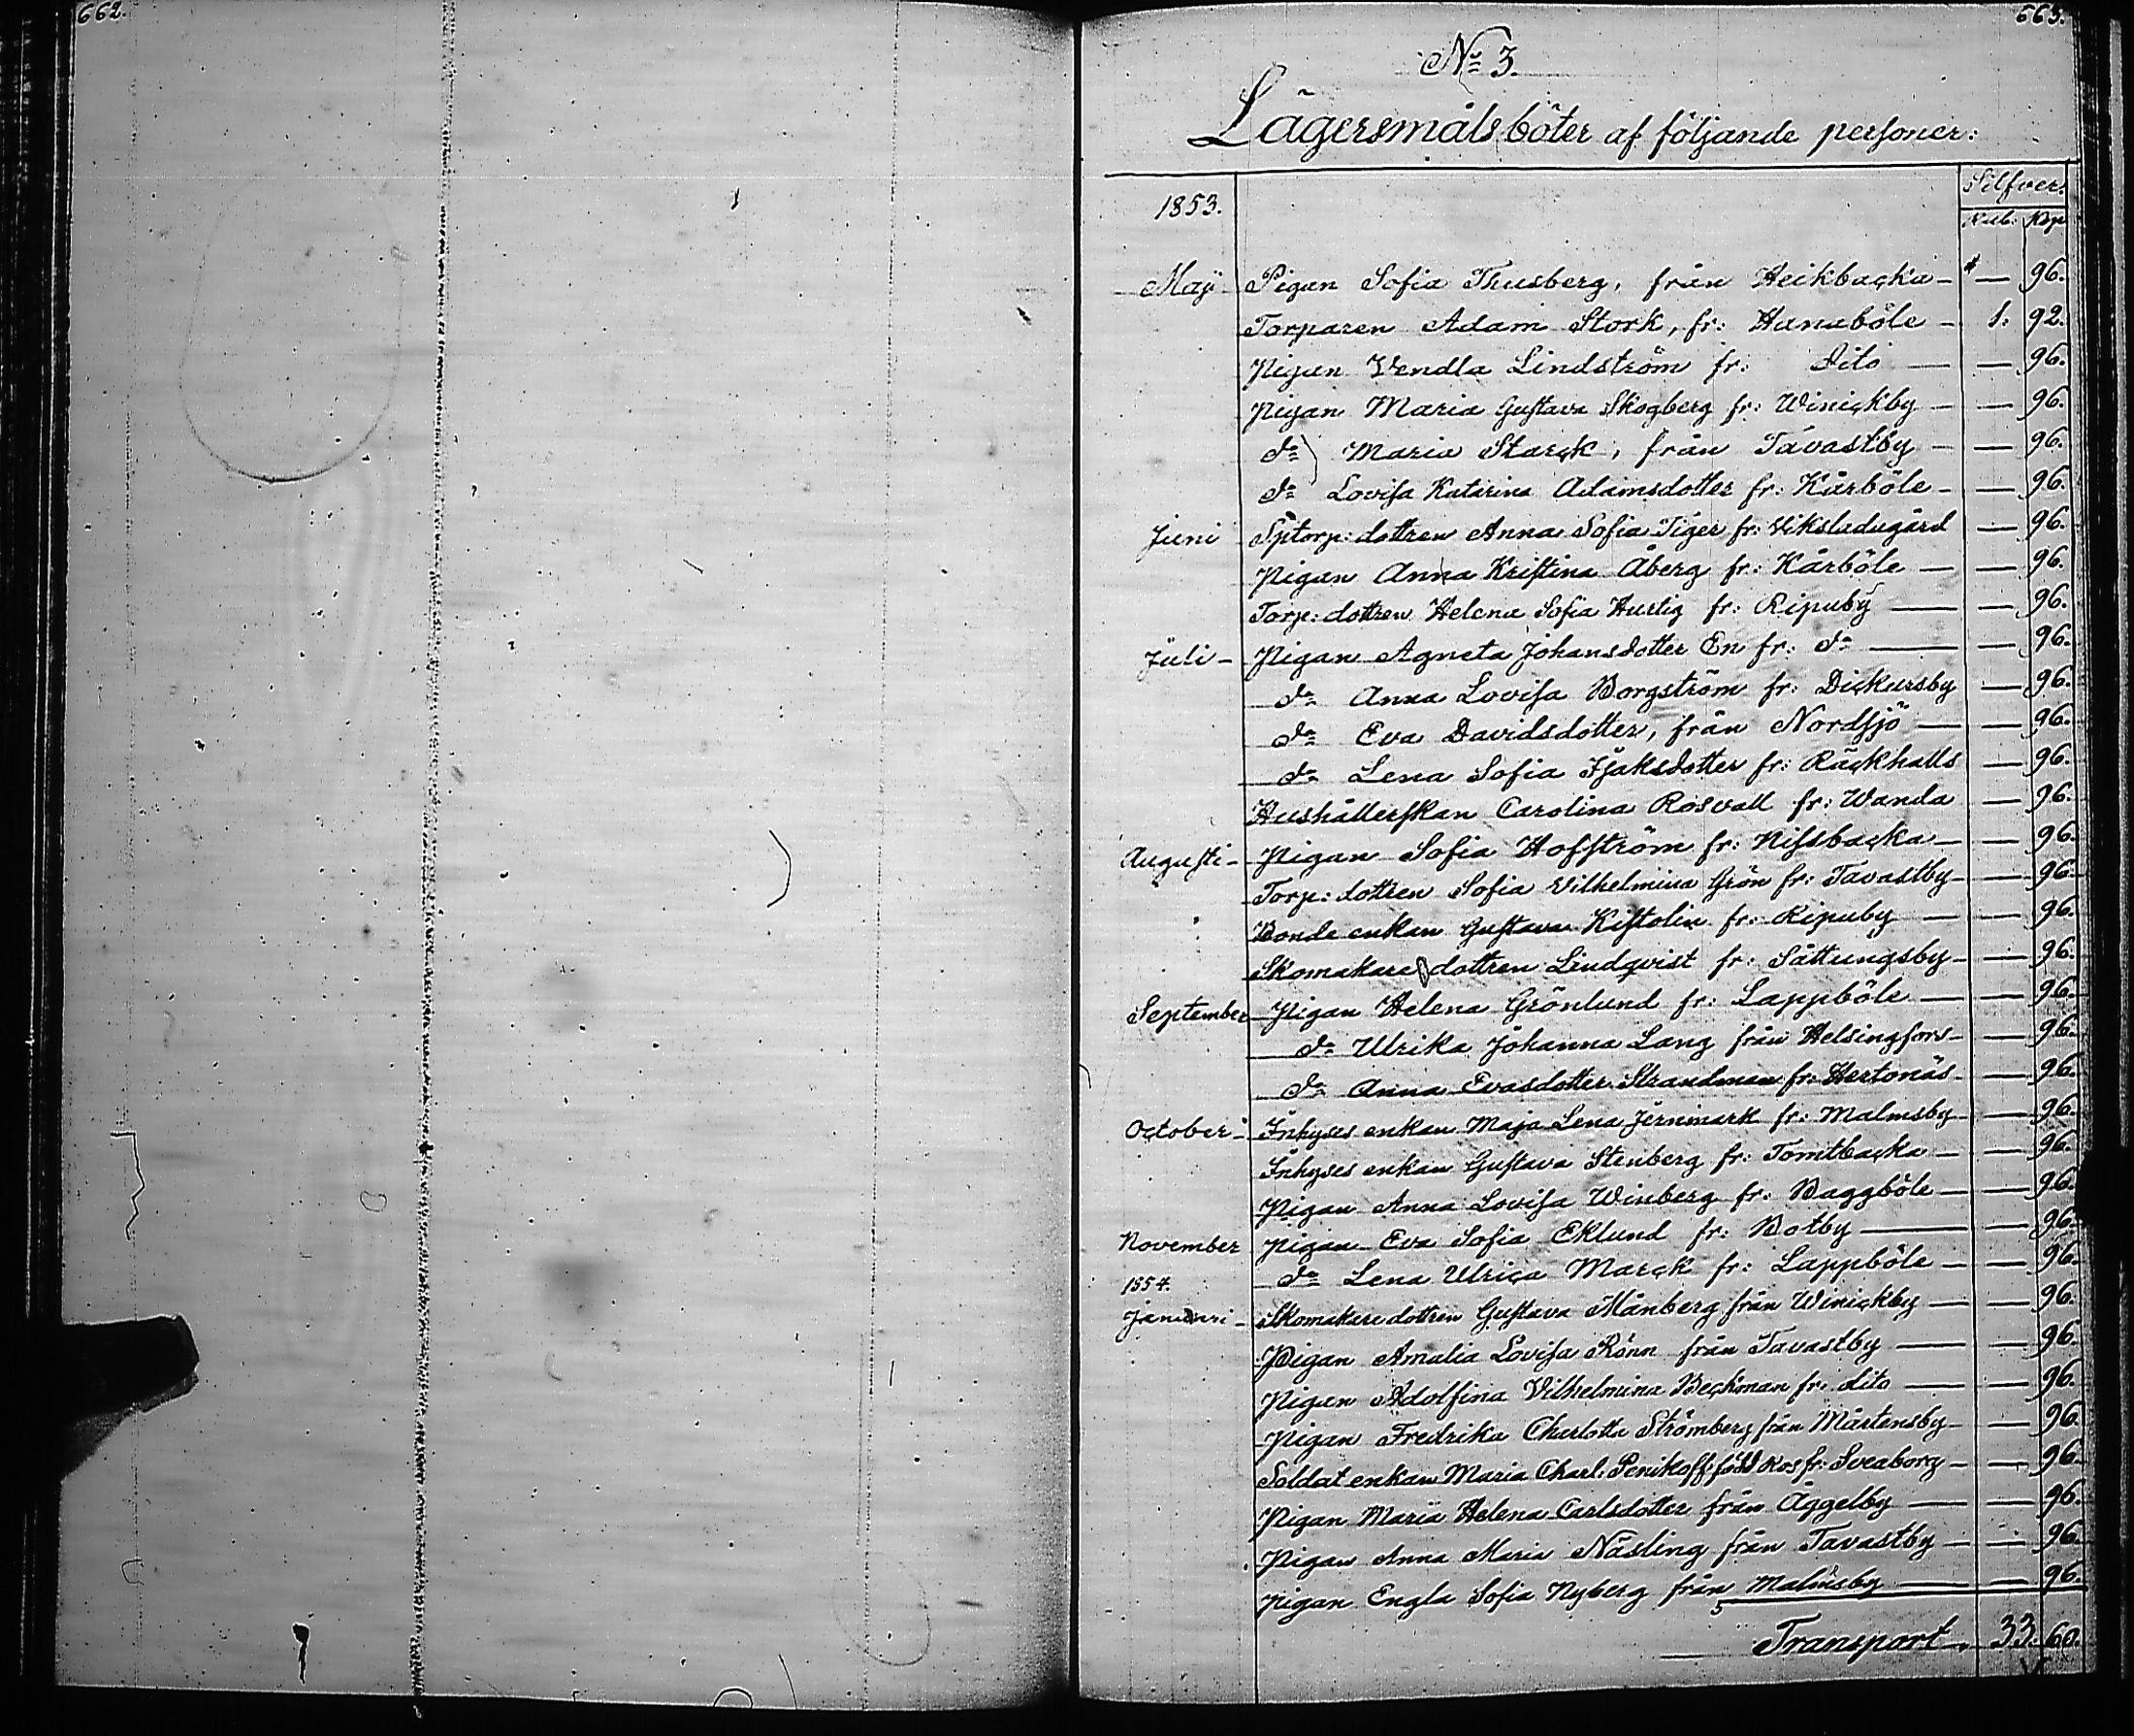 662.
663.
No 3.
Lägersmålsböter af följande personer:
Silfver.
1853.
Rub: Kop
Maji Pigan Sofia Thusberg, från Heikbacka — — 96.
Torparen Adam Stork, fr: Hanaböle — 1. 92.
Pigan Vendla Lindström fr: Dito — — 96.
Pigan Maria Gustava Skogberg fr: Winickby — — 96.
do Maria Starck, från Tavastby — — 96.
do Lovisa Katarina Adamsdotter fr: Kårböle — — 96.
Juni Sptorp: dottren Anna Sofia Tiger fr: Viksladugård — 96.
Pigan Anna Kristina Åberg fr: Kårböle — — 96.
Torp: dottren Helena Sofia Hurtig fr: Ripuby — — 96.
Juli — Pigan Agneta Johansdotter En fr: do — — 96.
do Anna Lovisa Borgström fr: Dickursby — 96.
do Eva Davidsdotter, från Nordsjö — — 96.
do Lena Sofia Isaksdotter fr: Räckhalls — 96.
Hushållerskan Carolina Rosvall fr: Wanda — 96.
Augusti — Pigan Sofia Hofström fr: Nissbacka — — 96.
Torp: dottren Sofia Vilhelmina Grön fr: Tavastby — — 96.
Bonde enkan Gustava Kistolin fr: Ripuby — — 96.
Skomakare dottren Lindqvist fr: Sottungsby — — 96.
September Pigan Helena Grönlund fr: Lappböle — — 96.
do Ulrika Johanna Lang från Helsingfors — — 96.
do Anna Evasdotter Strandman fr: Hertonäs — — 96.
October — Inhyses enkan Maja Lena Jernmark fr: Malmsby — — 96.
Inhyses enkan Gustava Stenberg fr: Tomtbacka — — 96.
Pigan Anna Lovisa Winberg fr: Baggböle — — 96.
November Pigan Eva Sofia Eklund fr: Botby — — 96.
do Lena Ulrica Marck fr: Lappböle — — 96.
1854.
Januari — Skomakare dottren Gustava Månberg från Winickby — — 96.
Pigan Amalia Lovisa Rönn från Tavastby — — 96.
Pigan Adolfina Vilhelmina Beckman fr: dito — — 96.
Pigan Fredrika Charlotta Strömberg från Mårtensby — — 96.
Soldat enkan Maria Charl: Penikoff född Ros fr: Sveaborg — — 96.
Pigan Maria Helena Carlsdotter från Åggelby — — 96.
Pigan Anna Maria Näsling från Tavastby — — 96.
Pigan Engla Sofia Nyberg från Malmsby — — 96.
Transport. 33. 60.